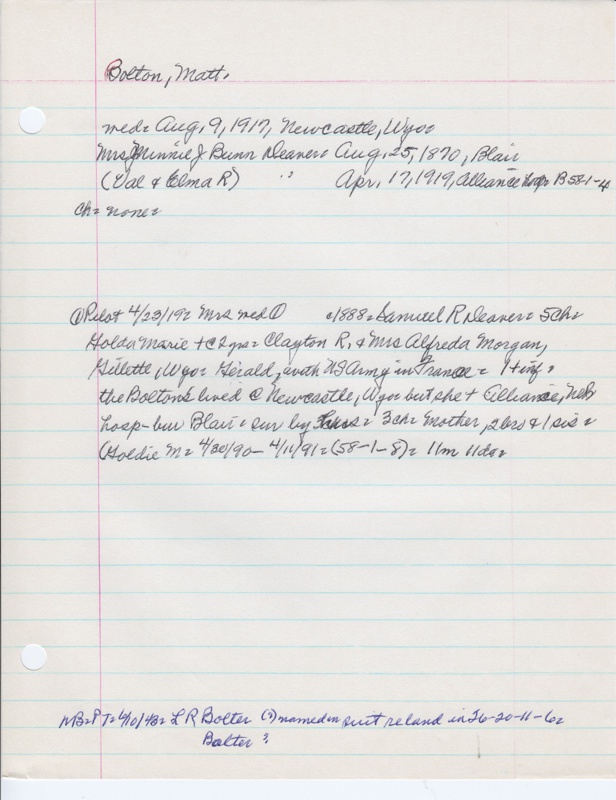 Bolton, Matt.
med= Aug. 9, 1917, Newcastle, Wyo=
Mrs Minnie J Bunn Deaver= Aug. 25, 1870, Blair
(Val & Elma R) " Apr. 17, 1919, Alliance Hosp= B 58-1-4
Ch= none=
① Pilot 4/23/19= Mrs med ① c1888= Samuel R Deaver= 5ch=
Golda Marie + @ 2 yrs= Clayton R. & Mrs Alfreda Morgan,
Gillette, Wyo= Gerald, with US Army in France= 1 + inf=
the Boltons lived @ Newcastle, Wyo but she + Alliance, Neb
hosp- bur Blair= sur by = 3ch= Mother, 2bro & 1 sis=
(Goldie M= 4/30/90- 4/11/91= (58-1-8)= 11m 11da=
= PT= 6/10/43= L R Bolter (?) named in suit re land in 26-20-11-6=
Bolter?